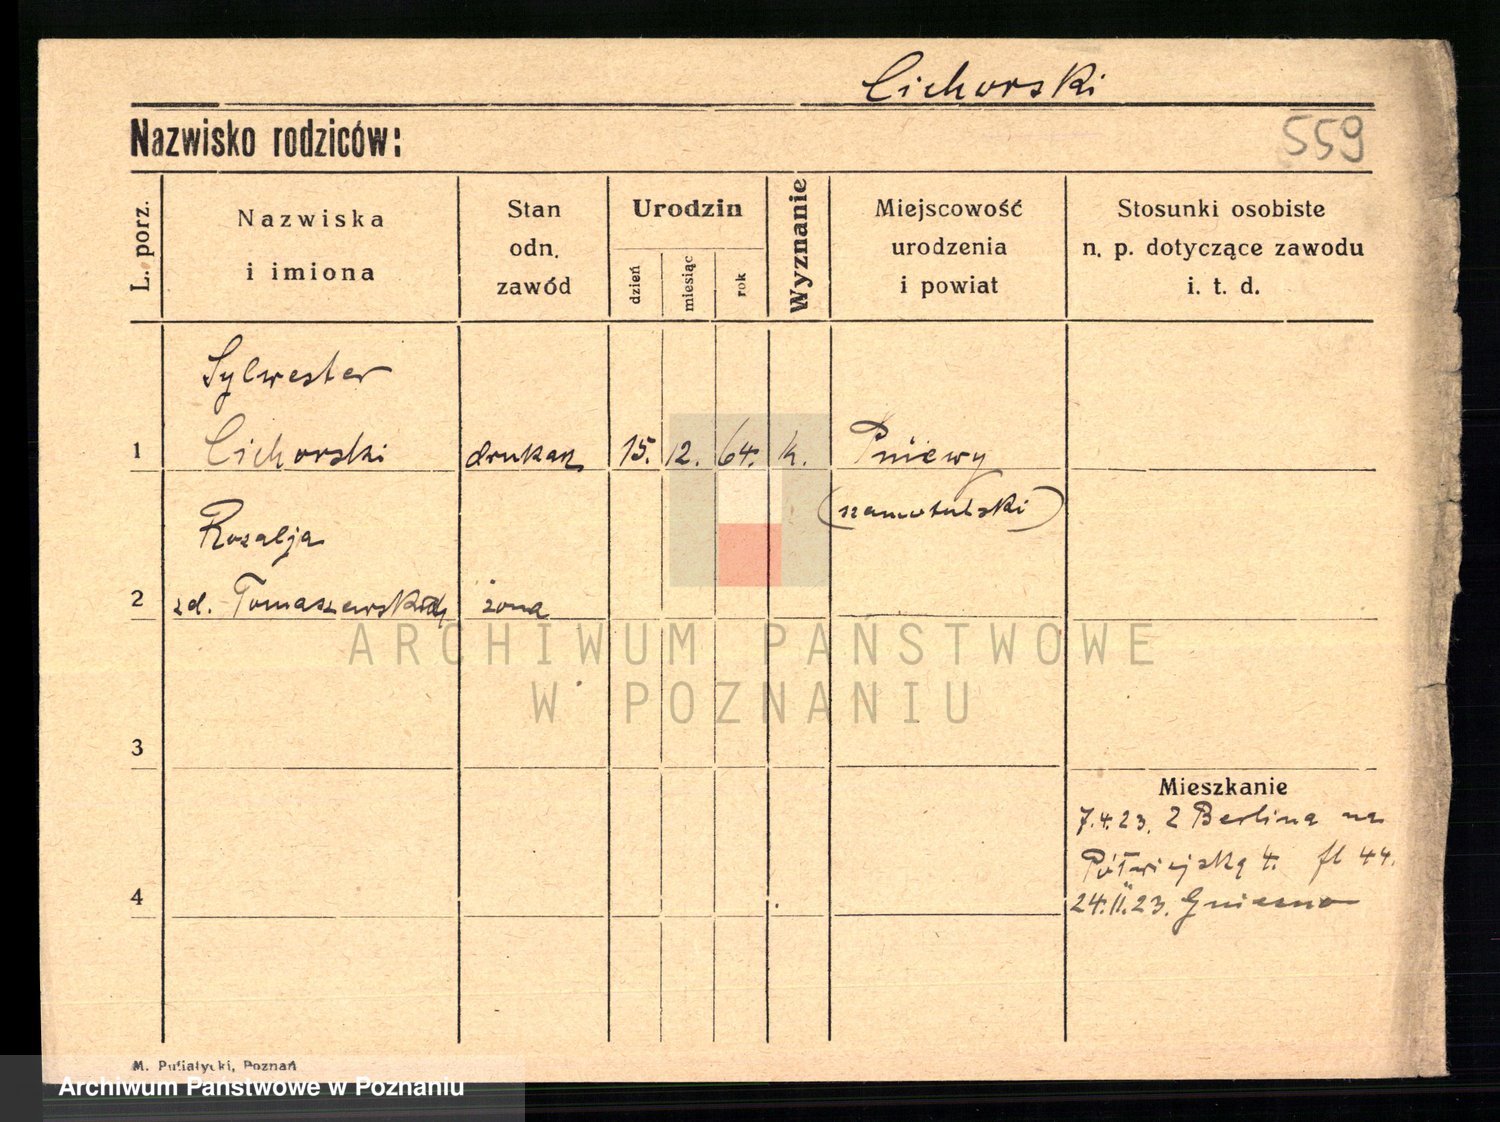 Cichorski
Nazwisko rodziców:
559
L. porz.
Nazwiska
i imiona
Stan
odn.
zawód
Urodzin
dzień
miesiąc
rok
Wyznanie
Miejscowość
urodzenia
i powiat
Stosunki osobiste
n. p. dotyczące zawodu
i. t. d.
Sylwester
1 Cichorski drukarz 15. 12. 64. k. Pniewy
(szamotulski)
Rozalja
2 zd. Tomaszewskich żona
ARCHIWUM PAŃSTWOWE
W POZNANIU
3
Mieszkanie
7.4.23. z Berlina na
Półwiejską 4. fl 44.
4
24.II.23. Gniezno
M. Putiatycki, Poznań
Archiwum Państwowe w Poznaniu